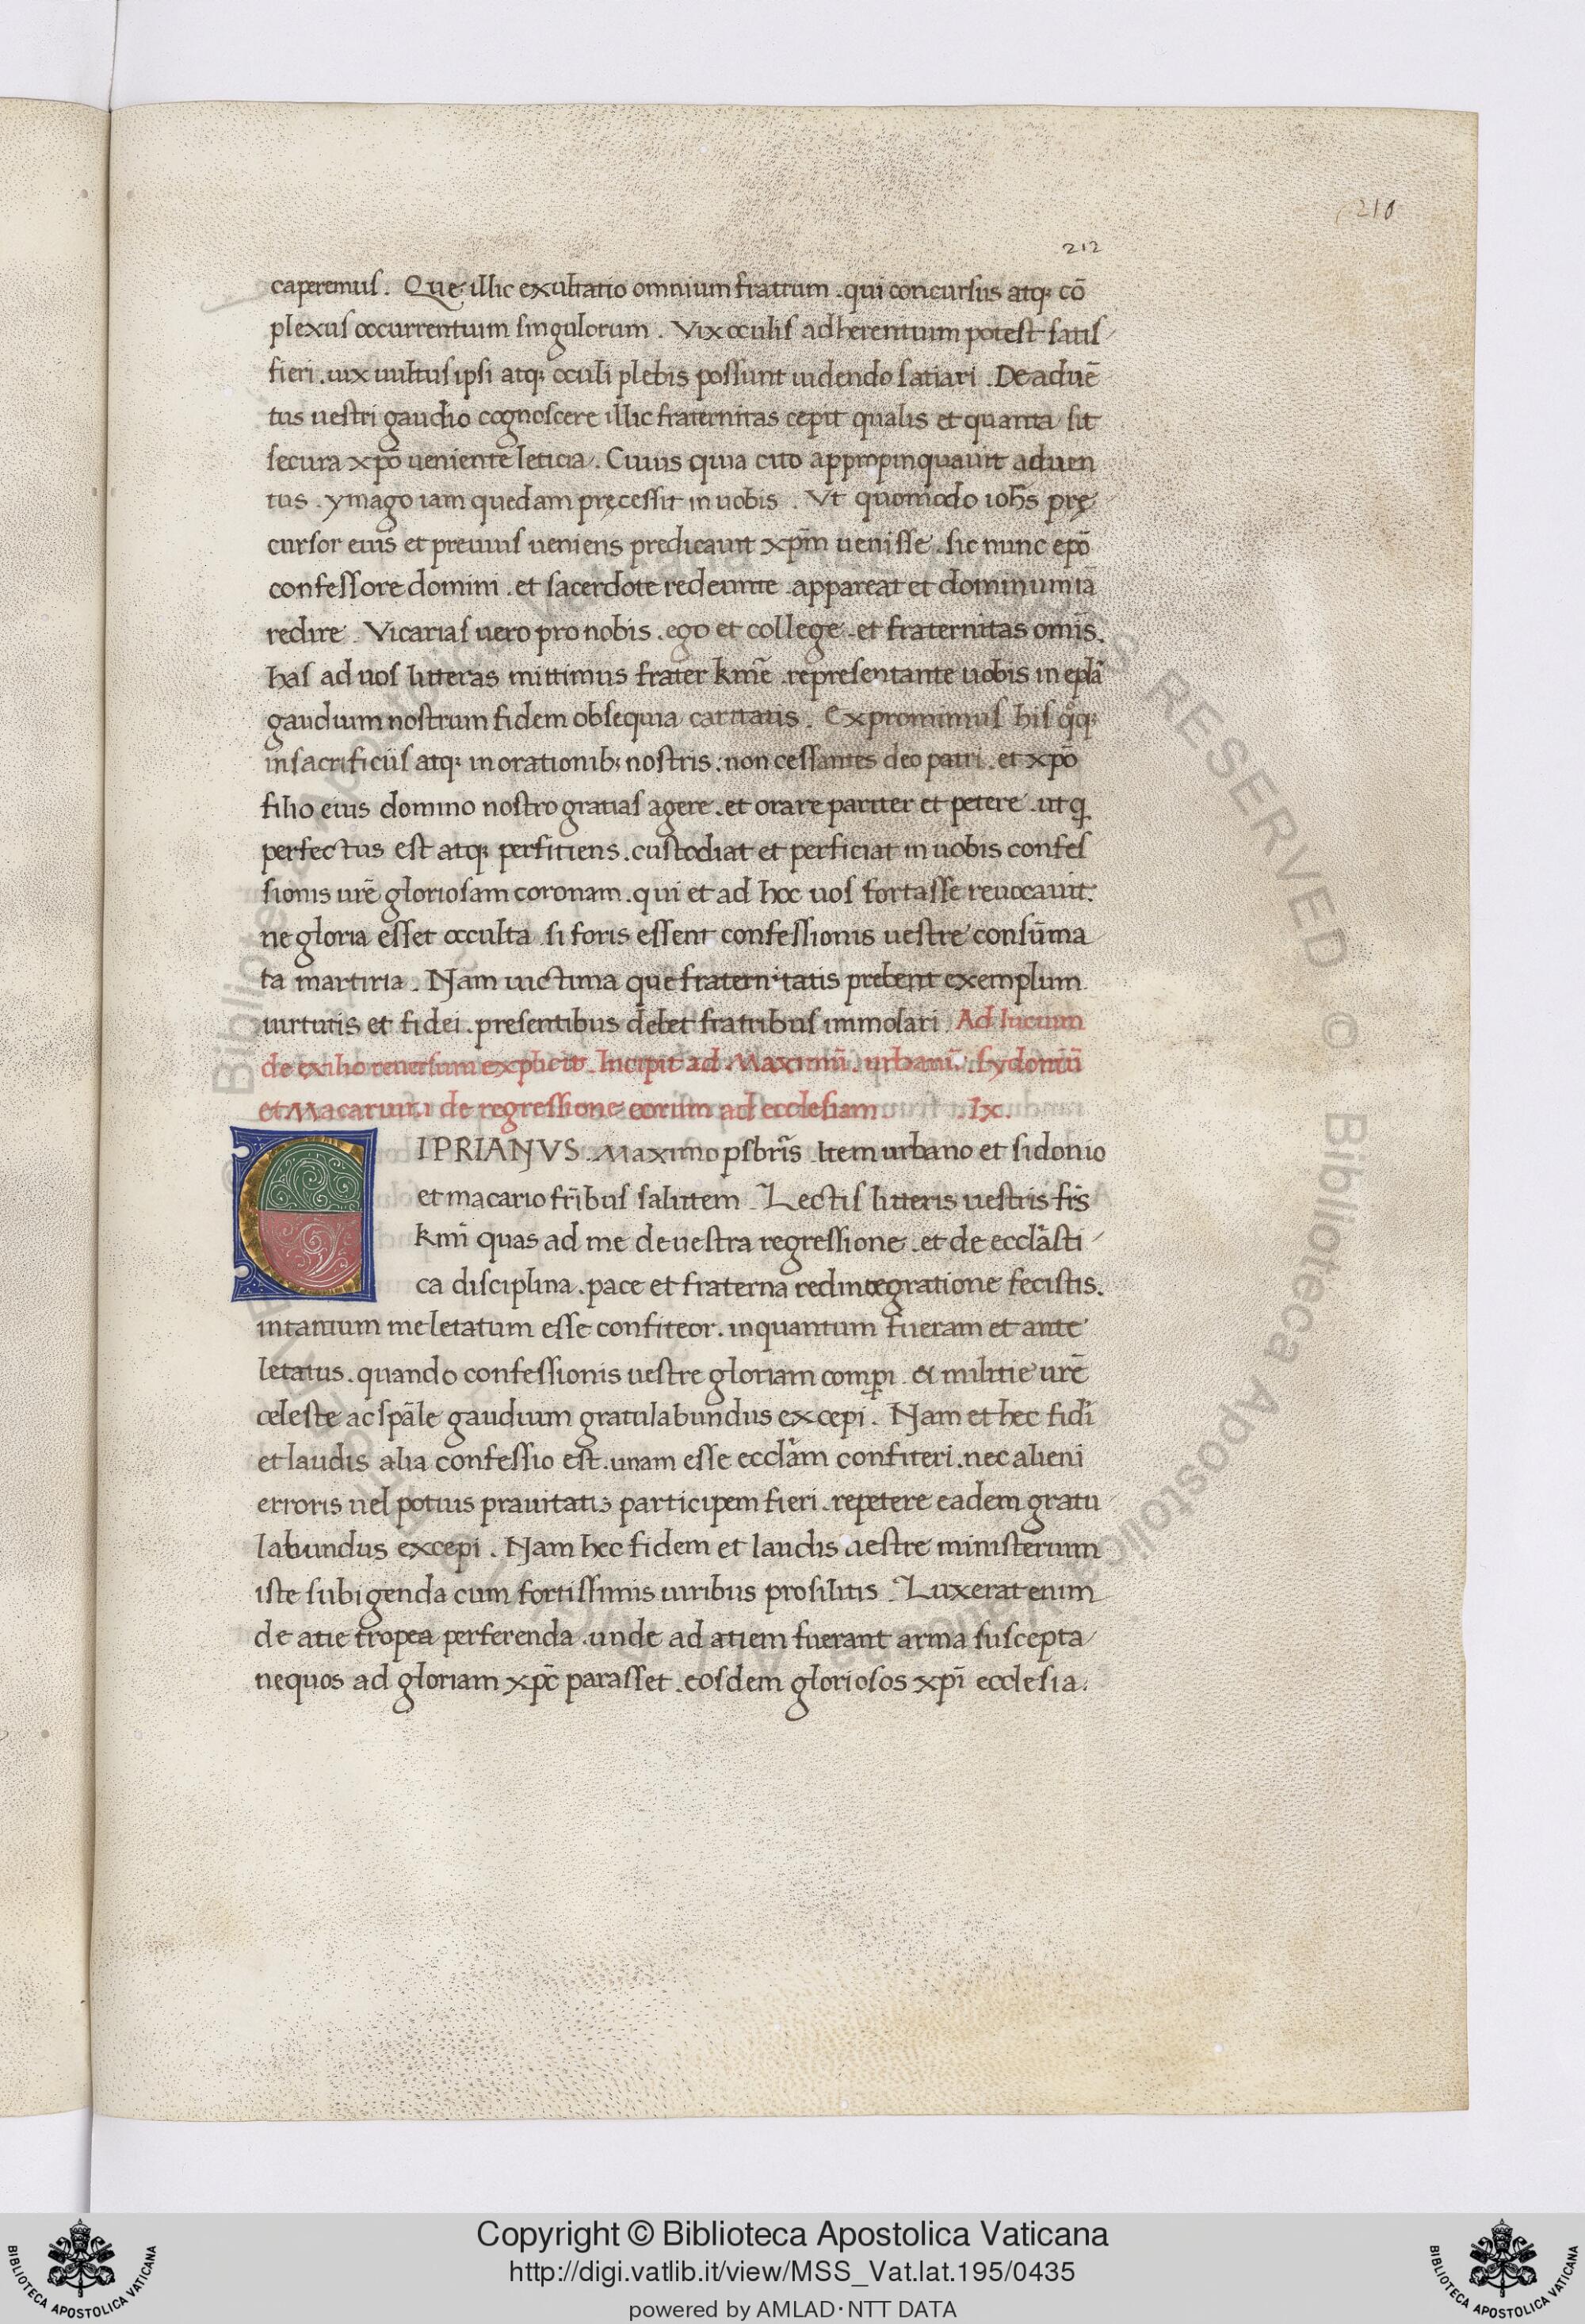 210
212
caperemus. Que illic exultatio omnium fratrum . qui concursus atq; cō
plexus occurrentium singulorum . Vix oculis adherentium potest satis
fieri . uix uultus ipsi atq; oculi plebis possunt uidendo satiari . De aduē
tus uestri gaudio cognoscere illic fraternitas cepit qualis et quanta sit
secura xpō ueniente leticia . Cuius quia cito appropinquauit aduen
tus . ymago iam quedam pręcessit in uobis . Vt quomodo ioh̄s prę
cursor eius et preuius ueniens predicauit xpm̄ uenisse . sic nunc epō
confessore domini . et sacerdote redeunte . appareat et dominum iā
redire . Vicarias uero pro nobis . ego et college . et fraternitas omīs .
has ad uos litteras mittimus frater kmē . representante uobis in eplā
gaudium nostrum fidem obsequia caritatis . Expromimus his qq;
in sacrificiis atq; in orationib; nostris . non cessantes deo patri . et xpō
filio eius domino nostro gratias agere . et orare pariter et petere . ut q
perfectus est atq; perfitiens . custodiat et perficiat in uobis confes
sionis urē gloriosam coronam . qui et ad hoc uos fortasse reuocauit .
ne gloria esset occulta si foris essent confessionis uestre consūma
ta martiria . Nam uictima que fraternitatis prebent exemplum
uirtutis et fidei . presentibus debet fratribus immolari . Ad lucium
de exilio reuersum explicit . Incipit ad Maximū . urbanū . sydoniū
et Macarium de regressione eorum ad ecclesiam . Ix .
CIPRIANVS . Maximo psbrīs . Item urbano et sidonio
et macario frībus salutem . Lectis litteris uestris frs̄
kmī quas ad me de uestra regressione . et de ecclāsti
ca disciplina . pace et fraterna redintegratione fecistis .
in tantum me letatum esse confiteor . in quantum fueram et ante
letatus . quando confessionis uestre gloriam comperi . & militie urē
celeste ac spāle gaudium gratulabundus excepi . Nam et hec fidī
et laudis alia confessio est . unam esse ecclām confiteri . nec alieni
erroris uel potius prauitatis participem fieri . repetere eadem gratu
labundus excepi . Nam hec fidem et laudis uestre ministerium
iste subigenda cum fortissimis uiribus prosilitis . Luxerat enim
de atie tropea perferenda . unde ad atiem fuerant arma suscepta
ne quos ad gloriam xpc̄ parasset . eosdem gloriosos xpī ecclesia .
Copyright © Biblioteca Apostolica Vaticana
http://digi.vatlib.it/view/MSS_Vat.lat.195/0435
powered by AMLAD·NTT DATA
BIBLIOTECA APOSTOLICA VATICANA
BIBLIOTECA APOSTOLICA VATICANA